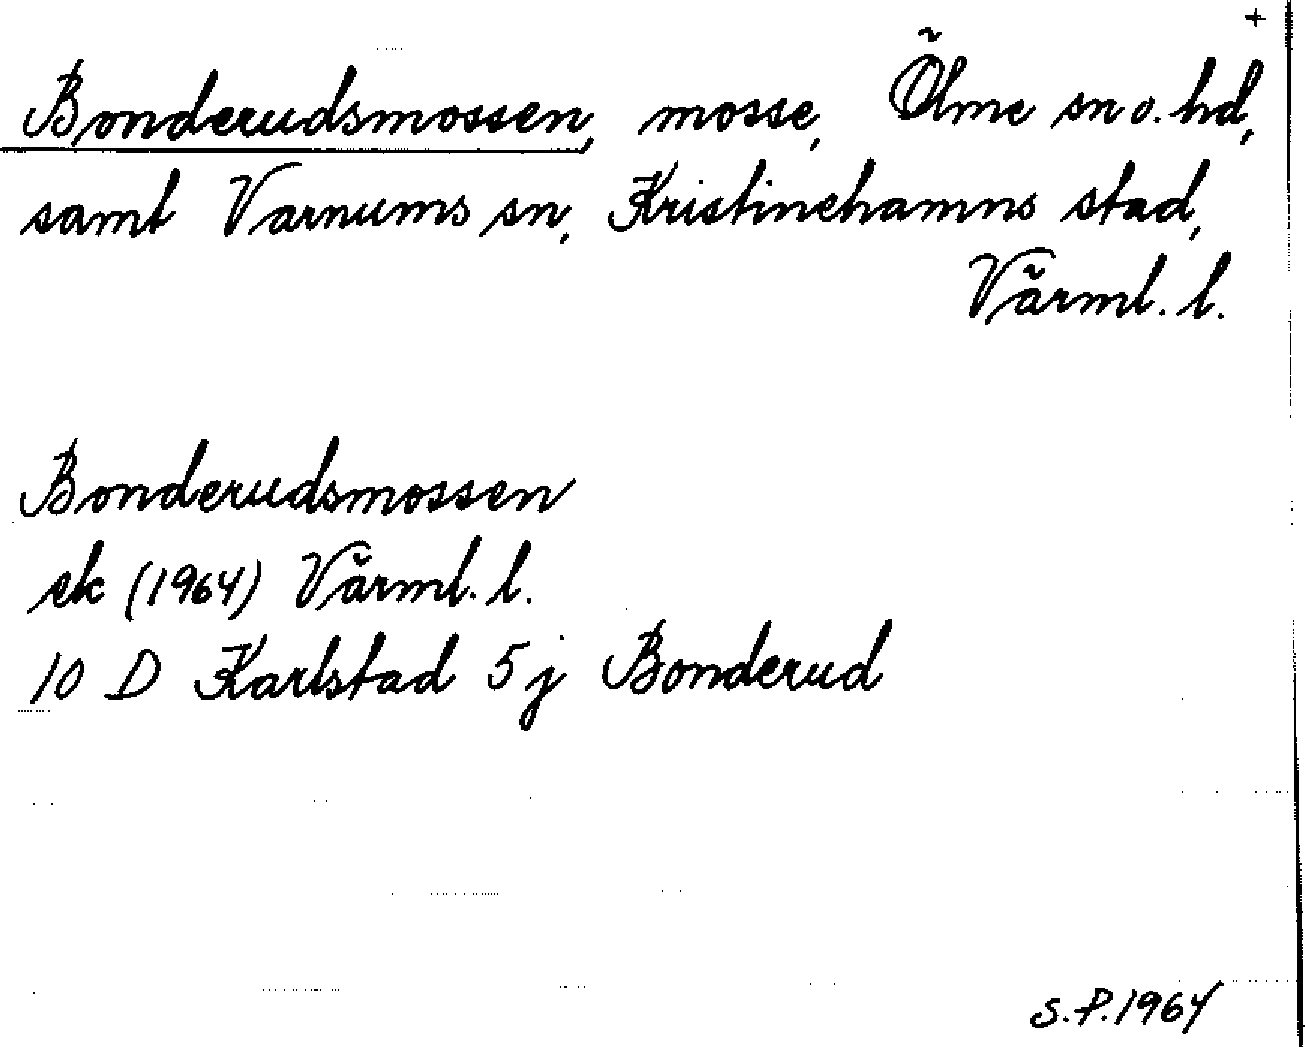 +
Bonderudsmossen, mosse, Ölme sn o. hd,
samt Varnums sn, Kristinehamns stad,
Värml. l.
Bonderudsmossen
ek (1964) Värml. l.
10 D Karlstad 5 j Bonderud
S.P. 1964